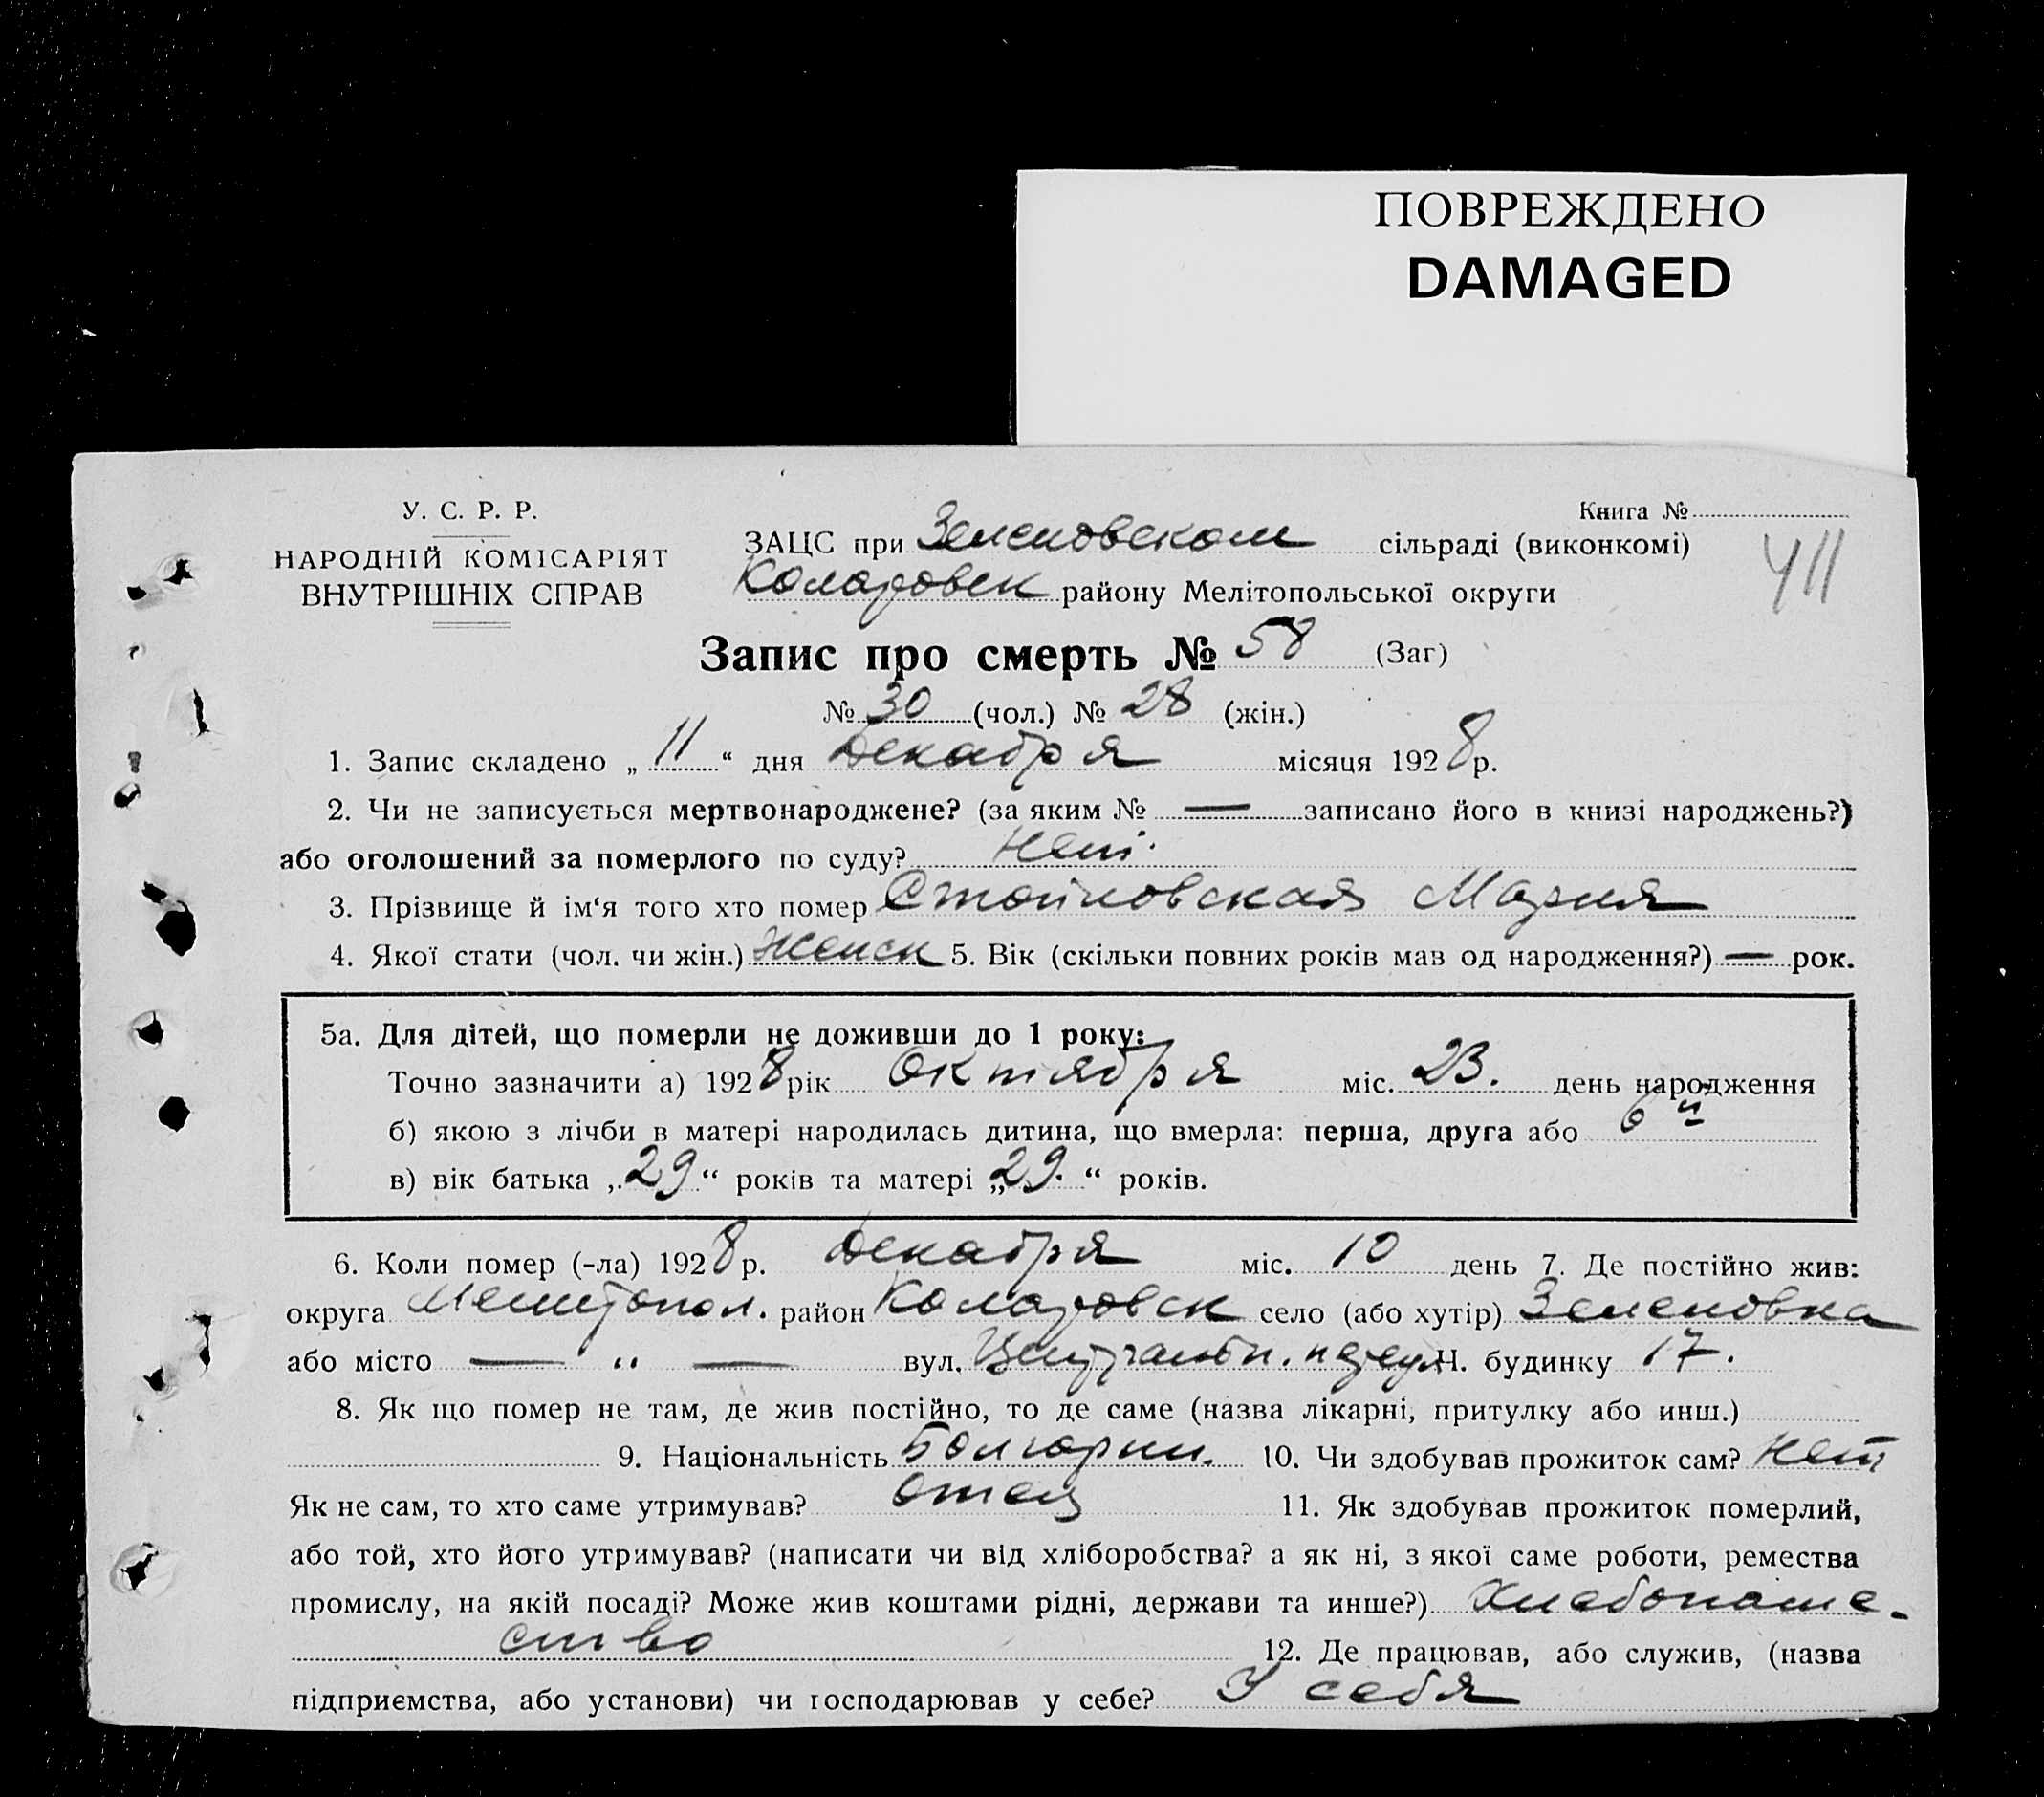 ПОВРЕЖДЕНО
DAMAGED
У. С. Р. Р.
НАРОДНІЙ КОМІСАРІЯТ
ВНУТРІШНІХ СПРАВ
Книга №
ЗАЦС при Зеленовском сільраді (виконкомі)
Коларовск району Мелітопольської округи
411
Запис про смерть № 58 (Заг)
№ 30 (чол.) № 28 (жін.)
1. Запис складено „ 11 “ дня Декабря місяця 1928 р.
2. Чи не записується мертвонароджене? (за яким № — записано його в книзі народжень?)
або оголошений за померлого по суду? Нет.
3. Прізвище й ім‘я того хто помер Стойновская Мария
4. Якої стати (чол. чи жін.) Женск 5. Вік (скільки повних років мав од народження?) — рок.
5а. Для дітей, що померли не доживши до 1 року:
Точно зазначити а) 1928 рік Октября міс. 23. день народження
б) якою з лічби в матері народилась дитина, що вмерла: перша, друга або 6й
в) вік батька „29“ років та матері „29.“ років.
6. Коли помер (-ла) 1928 р. Декабря міс. 10 день 7. Де постійно жив:
округа Мелитопол. район Коларовск село (або хутір) Зеленовка
або місто — „ — вул. Н. будинку 17.
8. Як що помер не там, де жив постійно, то де саме (назва лікарні, притулку або инш.)
9. Національність Болгарин. 10. Чи здобував прожиток сам? Нет
Як не сам, то хто саме утримував? Отец 11. Як здобував прожиток померлий,
або той, хто його утримував? (написати чи від хліборобства? а як ні, з якої саме роботи, ремества
промислу, на якій посаді? Може жив коштами рідні, держави та инше?) Хлебопаше-
ство 12. Де працював, або служив, (назва
підприємства, або установи) чи господарював у себе? У себя